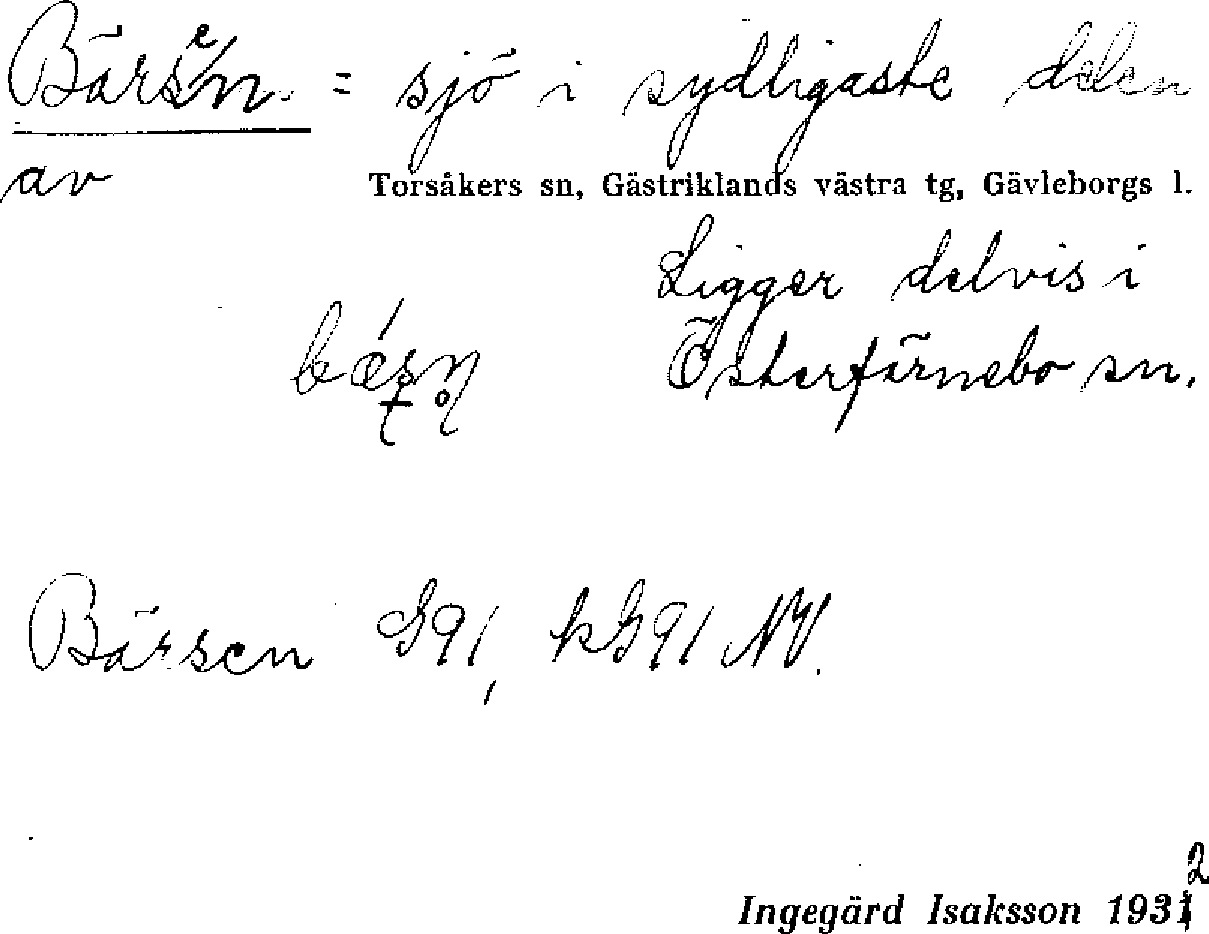 Bärsen = sjö i sydligaste delen
av Torsåkers sn, Gästriklands västra tg, Gävleborgs l.
Ligger delvis i
Österfärnebo sn.
Bärsen G91, kG91 NV.
Ingegärd Isaksson 1932